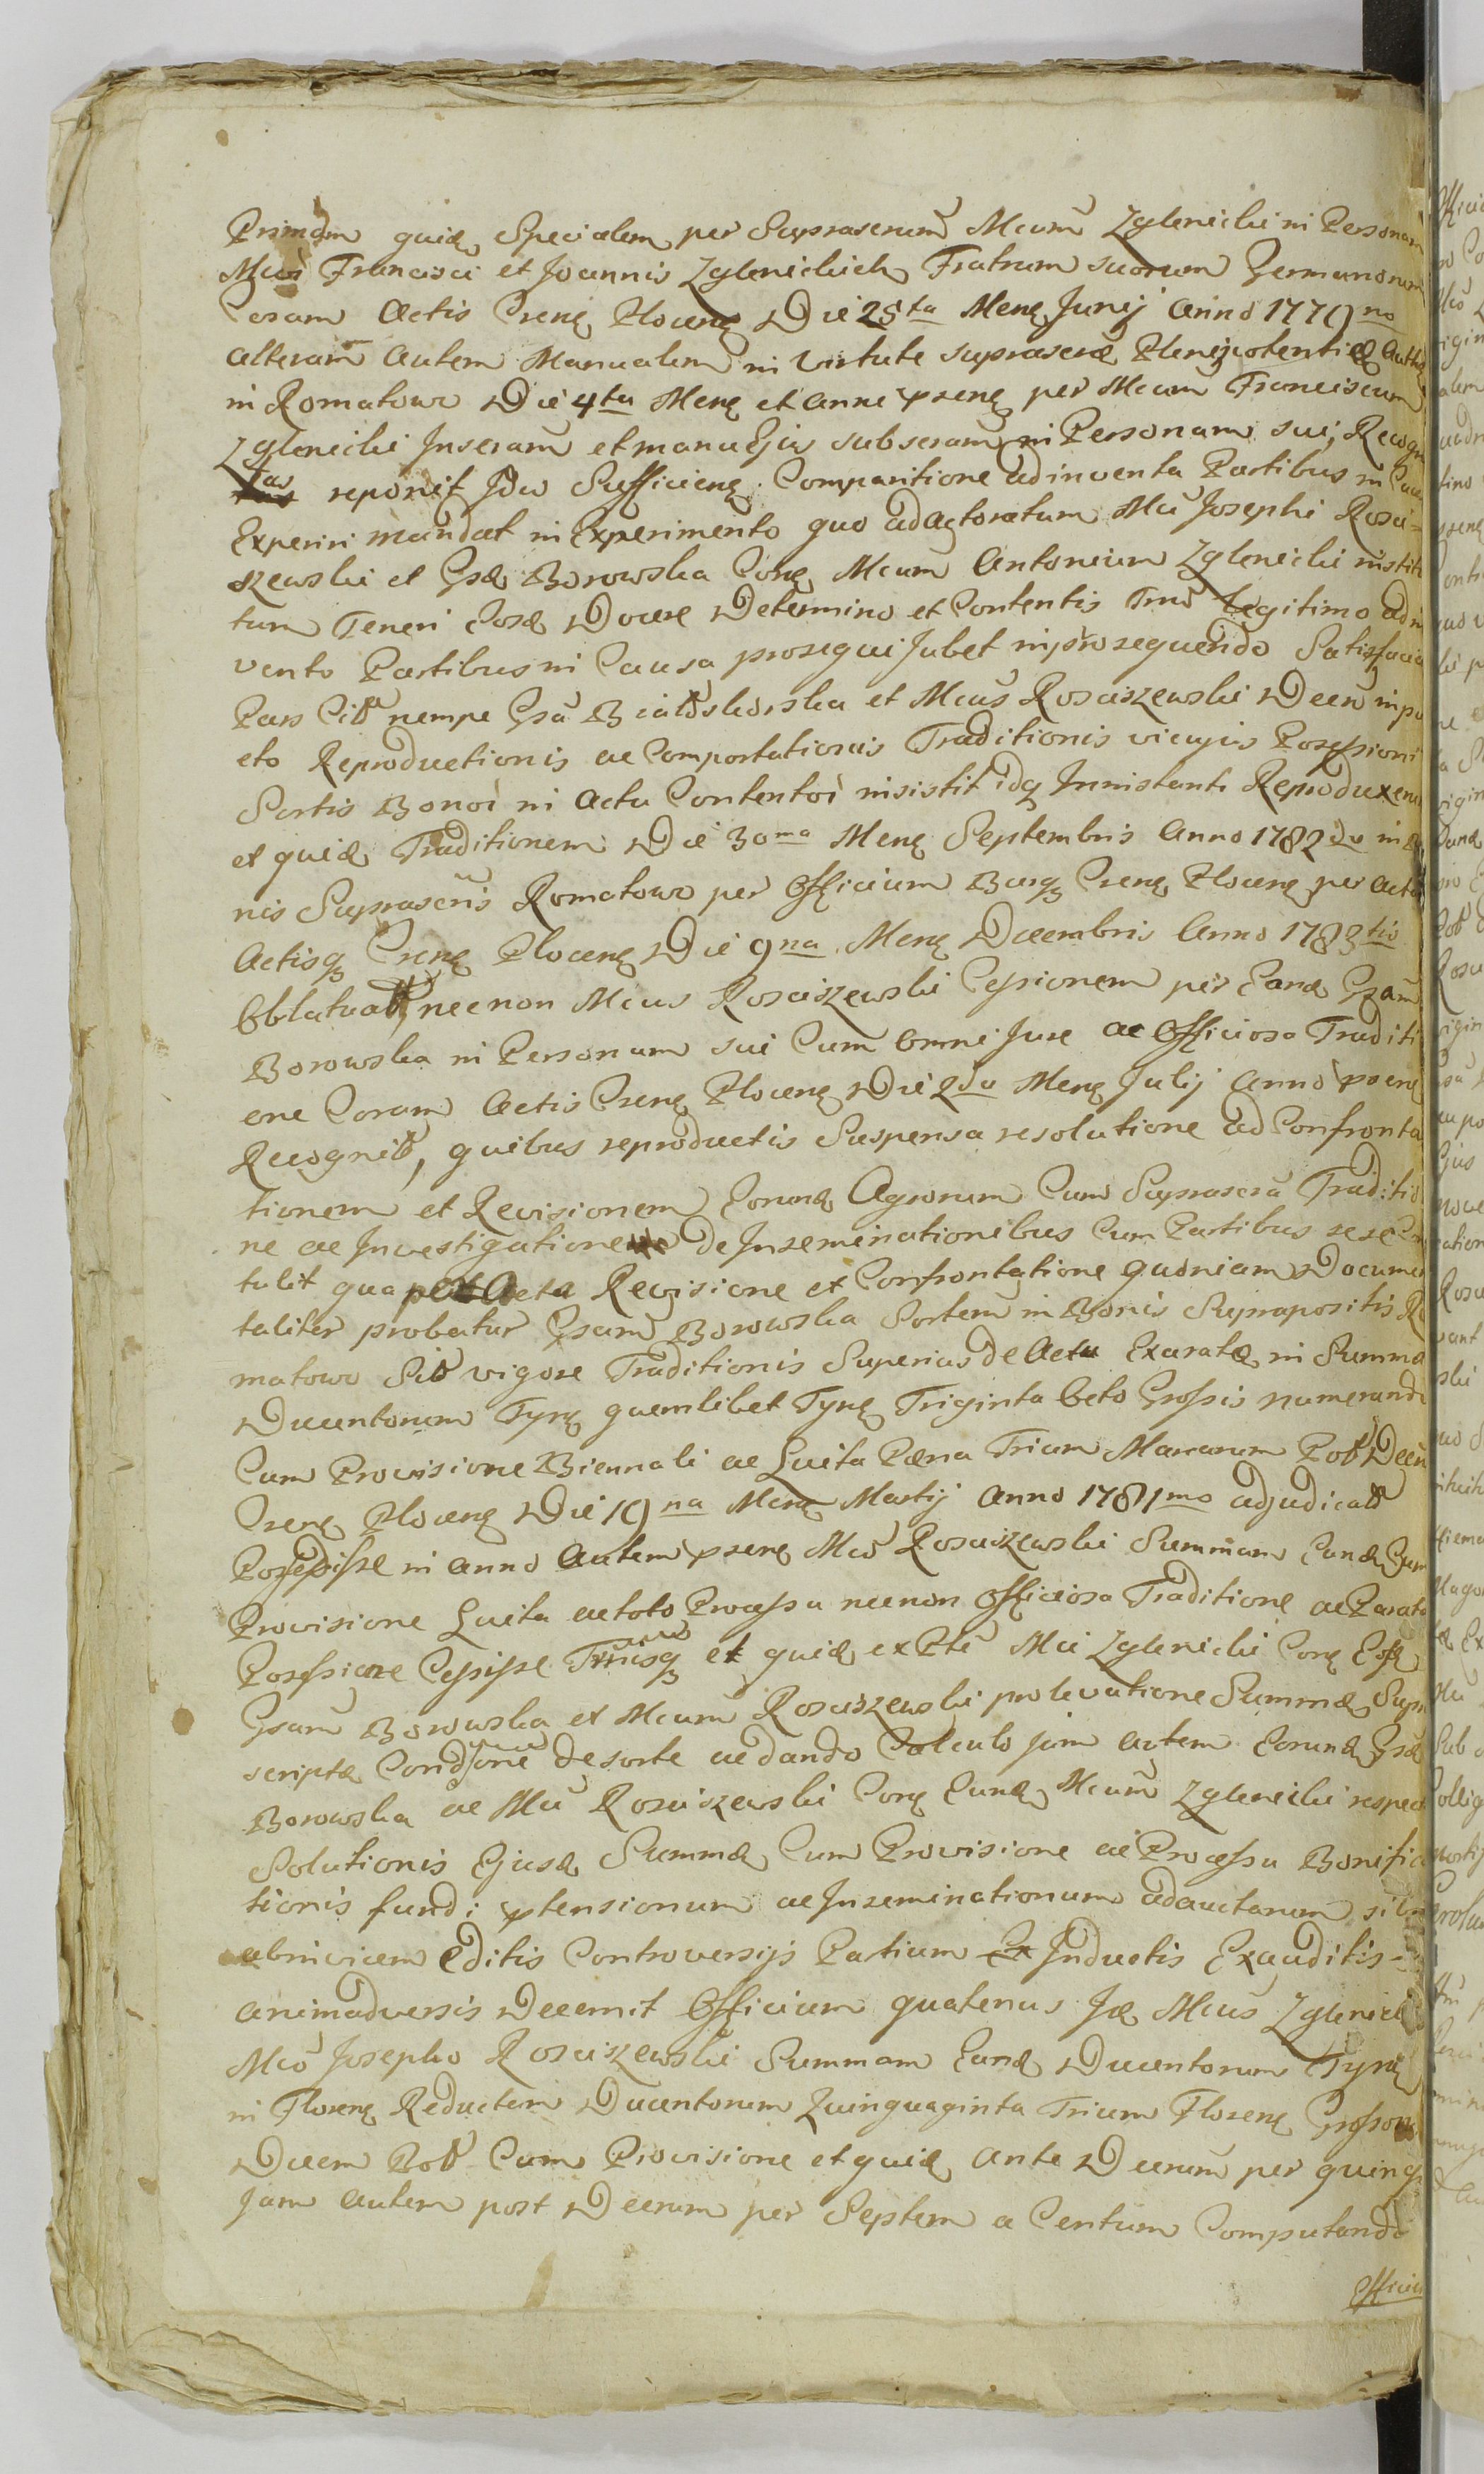 Primam quidē Specialem per Suprascrum Mcum Zglenicki in Personam
Mcōr Francisci et Joannis Zglenickich Fratrum suorum Germanorum
Coram Actis Crenę Plocenę Die 25ta Menę Junij Anno 1779no
alteram autem Manualem in Virtute suprascræ Plenipotentiæ
in Romatowo Die 4ta Menę et anni prænę per Mcum Franciscum
Zglenicki Inscram et manu Ejus subscram in Personam sui, Recog
tas reponit Ideo Sufficienę Comparitione adinventa Partibus in
Experiri mandat in Experimento quo ad actoratum Mci Josephi Rosci-
szewski et Gsæ Borowska Conę Mcum Antonium Zglenicki instit
tum Teneri Eosd Docere Determino et Contentis Trno Legitimo adin
vento Partibus in Causa prosequi Jubet in prosequendo Satisfacien
Pars Citā nempe Gsa Białoskorska et Mcus Rosciszewski Decro in pu
cto Reproductionis ac Comportationis Traditionis vicajus Possessioni
Sortis Bonor in actu Contentor insistit idq Innistanti Reproduxerunt
et quidē Traditionem Die 30ma Menę Septembris Anno 1782do in
nis Suprascris Romatowo per Officium Burgę Crenę Plocenę per acta
Actisq Crenę Plocenę Die 9na Menę Decembris Anno 1783tio
Oblatuatā necnon Mcus Rosciszewski Cessionem per Eand Gsam
Borowska in Personam sui Cum Omni Jure ac Officiosa Traditi
one Coram Actis Crenę Plocenę Die 2da Menę Julij Anno prænę
Recognitā, quibus reproductis Suspensa resolutione ad Confronta
tionem et Revisionem Eorund Agrorum Cum Suprascra Traditio
ne ac Investigatione de Inseminationibus Cum Partibus sese
tulit qua peracta Revisione et Confrontatione quoniam Documen
taliter probatur Gsam Borowska Sortem in Bonis Supra positis Ro
matowo Sitā vigore Traditionis Superius de Actu Exaratæ in Summa
Ducentorum Tynę quemlibet Tynę Triginta Octo Grossis numerando
Cum Provisione Biennali ac Luita Pæna Trium Marcarum Polł Decrō
Crenę Plocenę Die 19na Menę Martij Anno 1781mo adjudicatā
Possedisse in anno autem prænę Mcō Rosciszewski Summam Eand Cum
Provisione Luita ac toto Processu necnon Officiosa Traditione ac Parata
Possessione Cessisse Trnisq et quidē ex Pte Mci Zglenicki Conę Eosd
Gsam Borowska et Mcum Rosciszewski pro levatione Summæ Supra
scriptæ Condsone de sorte ac dando Calculo jam autem Eorund Gsæ
Borowska ac Mci Rosciszewski Conę Eund Mcum Zglenicki respect
Solutionis Ejusd Summæ Cum Provisione ac Processu Bonifica
tionis fundi ptensionum ac Inseminationum adauctarum
ab invicem Editis Controversijs Partium Ex Inductis Exauditis -
animadversis Decernit Officium quatenus Jd Mcus Zglenicki
Mcō Josepho Rosciszewski Summam Eand Ducentorum Tynę
in Florenę Reductam Ducentorum Quinquaginta Trium Florenę Grossorum
Decem Polł Cum Provisione et quidē ante Decrum per quinq
Jam autem post Decrum per Septem a Centum Computando
Officiu